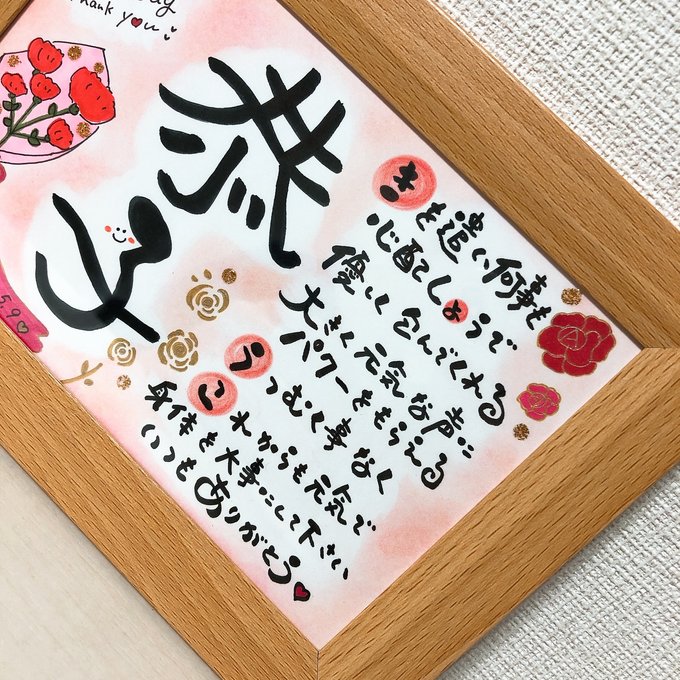 Thank you
恭子
きを遣い何事も
心配しょうで
優しく包んでくれる
大きく元気な声に
パワーをもらえる
うつむく事なく
これからも元気で
身体を大事にして下さい
いつもありがとう
5.9